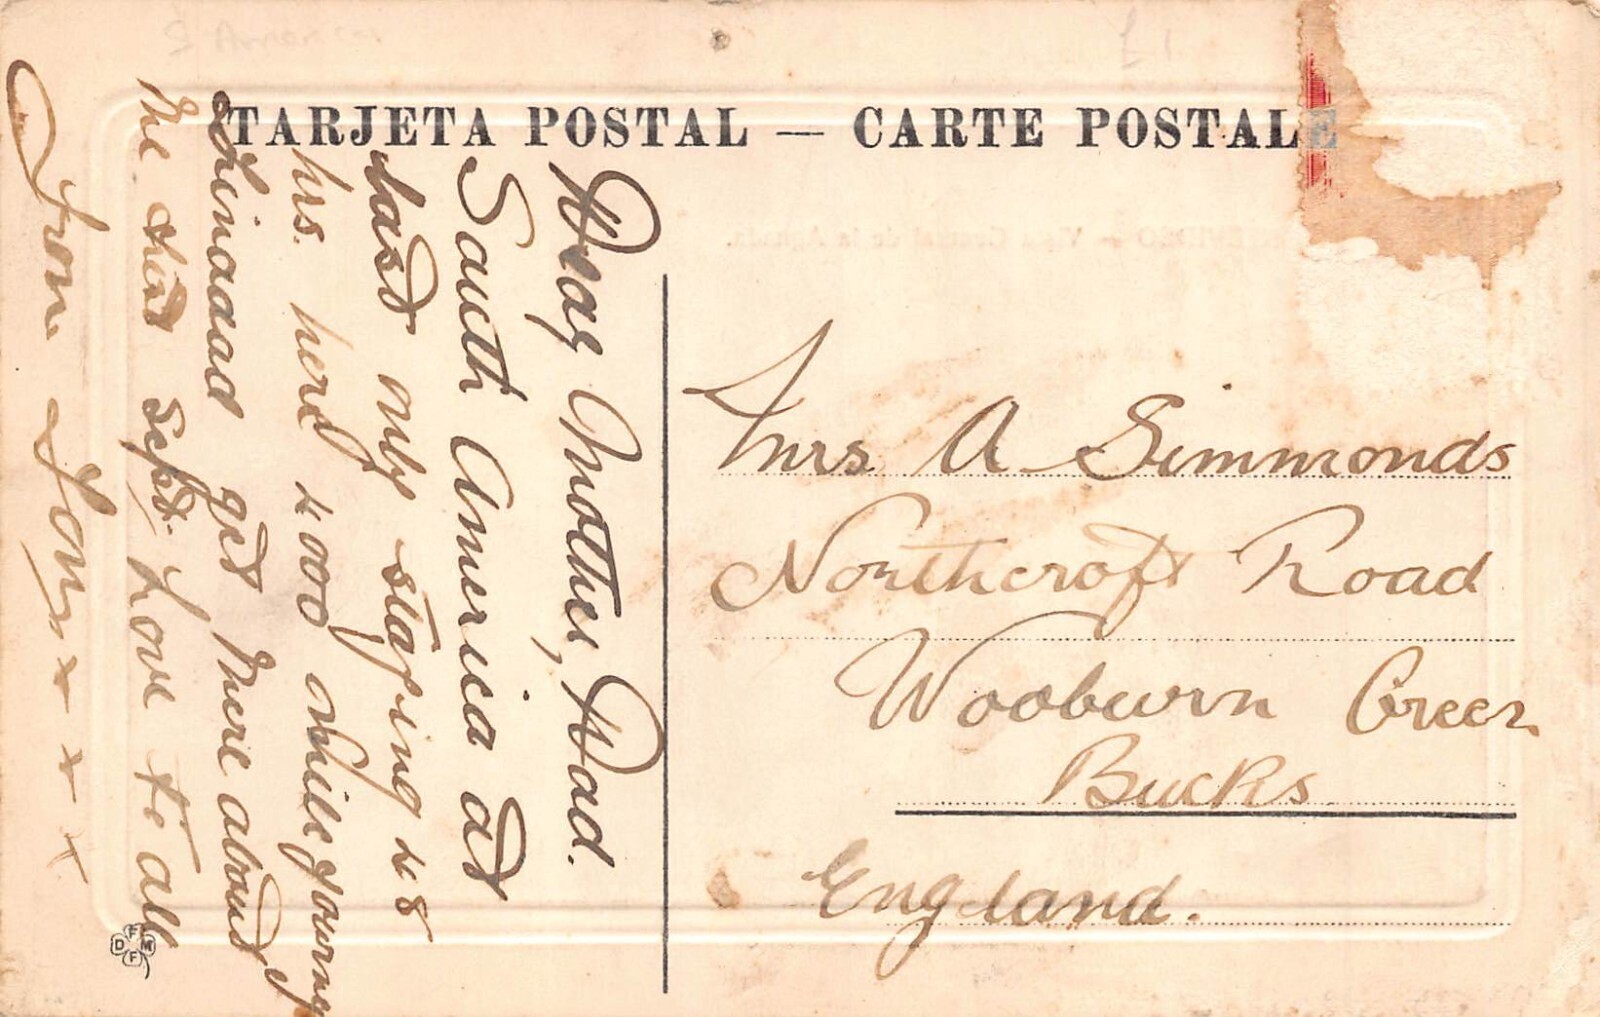 S America
£1
TARJETA POSTAL — CARTE POSTALE
Dear Mother, Dad.
South America at
last only staying 48
hrs. here 4000 mile journy
Trinadad get there about
the third Sept. Love to all
from Tony x x x
Mrs A Simmonds
Northcroft Road
Wooburn Green
Bucks
England.
F
D M
F